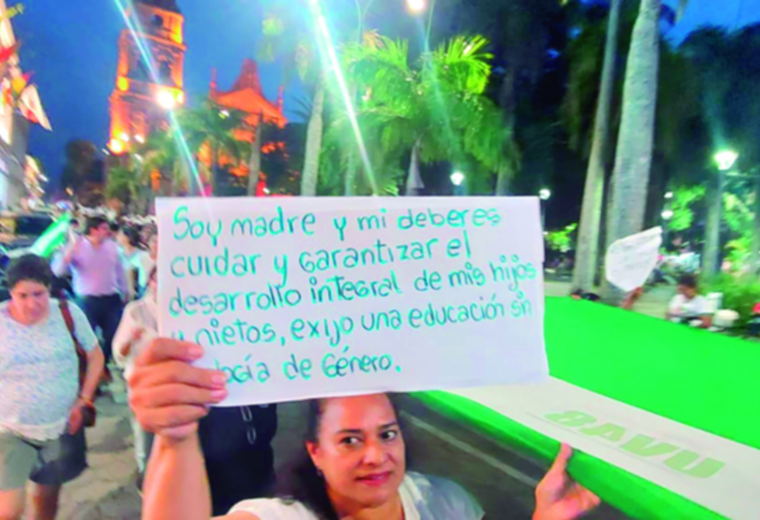 Soy madre y mi deber es
cuidar y Garantizar el
desarrollo integral de mis hijos
nietos, exijo una educación sin
de Género.